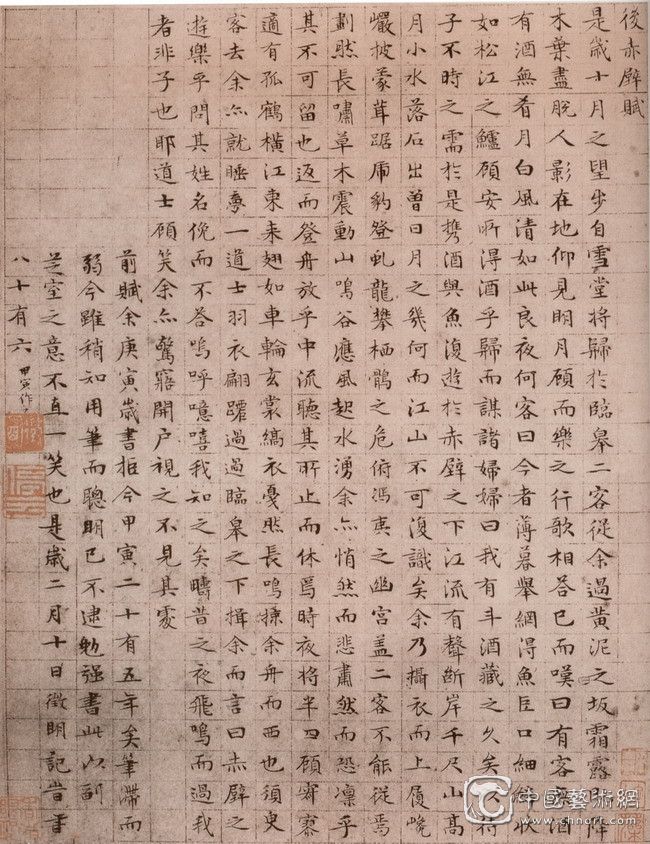 後赤壁賦
是歲十月之望步自雪堂將歸於臨皋二客從余過黃泥之坂霜露既降
木葉盡脫人影在地仰見明月顧而樂之行歌相荅已而嘆曰有客無酒
有酒無肴月白風清如此良夜何客曰今者薄暮舉網得魚巨口細鱗狀
如松江之鱸顧安所得酒乎歸而謀諸婦婦曰我有斗酒藏之久矣以待
子不時之需於是攜酒與魚復遊於赤壁之下江流有聲斷岸千尺山高
月小水落石出曾日月之幾何而江山不可復識矣余乃攝衣而上履巉
巖披蒙茸踞虎豹登虬龍攀栖鶻之危俯馮夷之幽宮盖二客不能從焉
劃然長嘯草木震動山鳴谷應風起水湧余亦悄然而悲肅然而恐凜乎
其不可留也返而登舟放乎中流聽其所止而休焉時夜將半四顧寂寥
適有孤鶴橫江東来翅如車輪玄裳縞衣戛然長鳴掠余舟而西也須臾
客去余亦就睡夢一道士羽衣翩躚過過臨皋之下揖余而言曰赤壁之
遊樂乎問其姓名俛而不荅嗚呼噫嘻我知之矣疇昔之夜飛鳴而過我
者非子也耶道士顧笑余亦驚寤開戶視之不見其處
前賦余庚寅歲書拒今甲寅二十有五年矣筆滯而
弱今雖稍知用筆而聰明已不逮勉强書此以副
芝室之意不直一笑也是歲二月十日徵明記昔
八十有六 甲寅作
中國藝術網
www.chnart.com